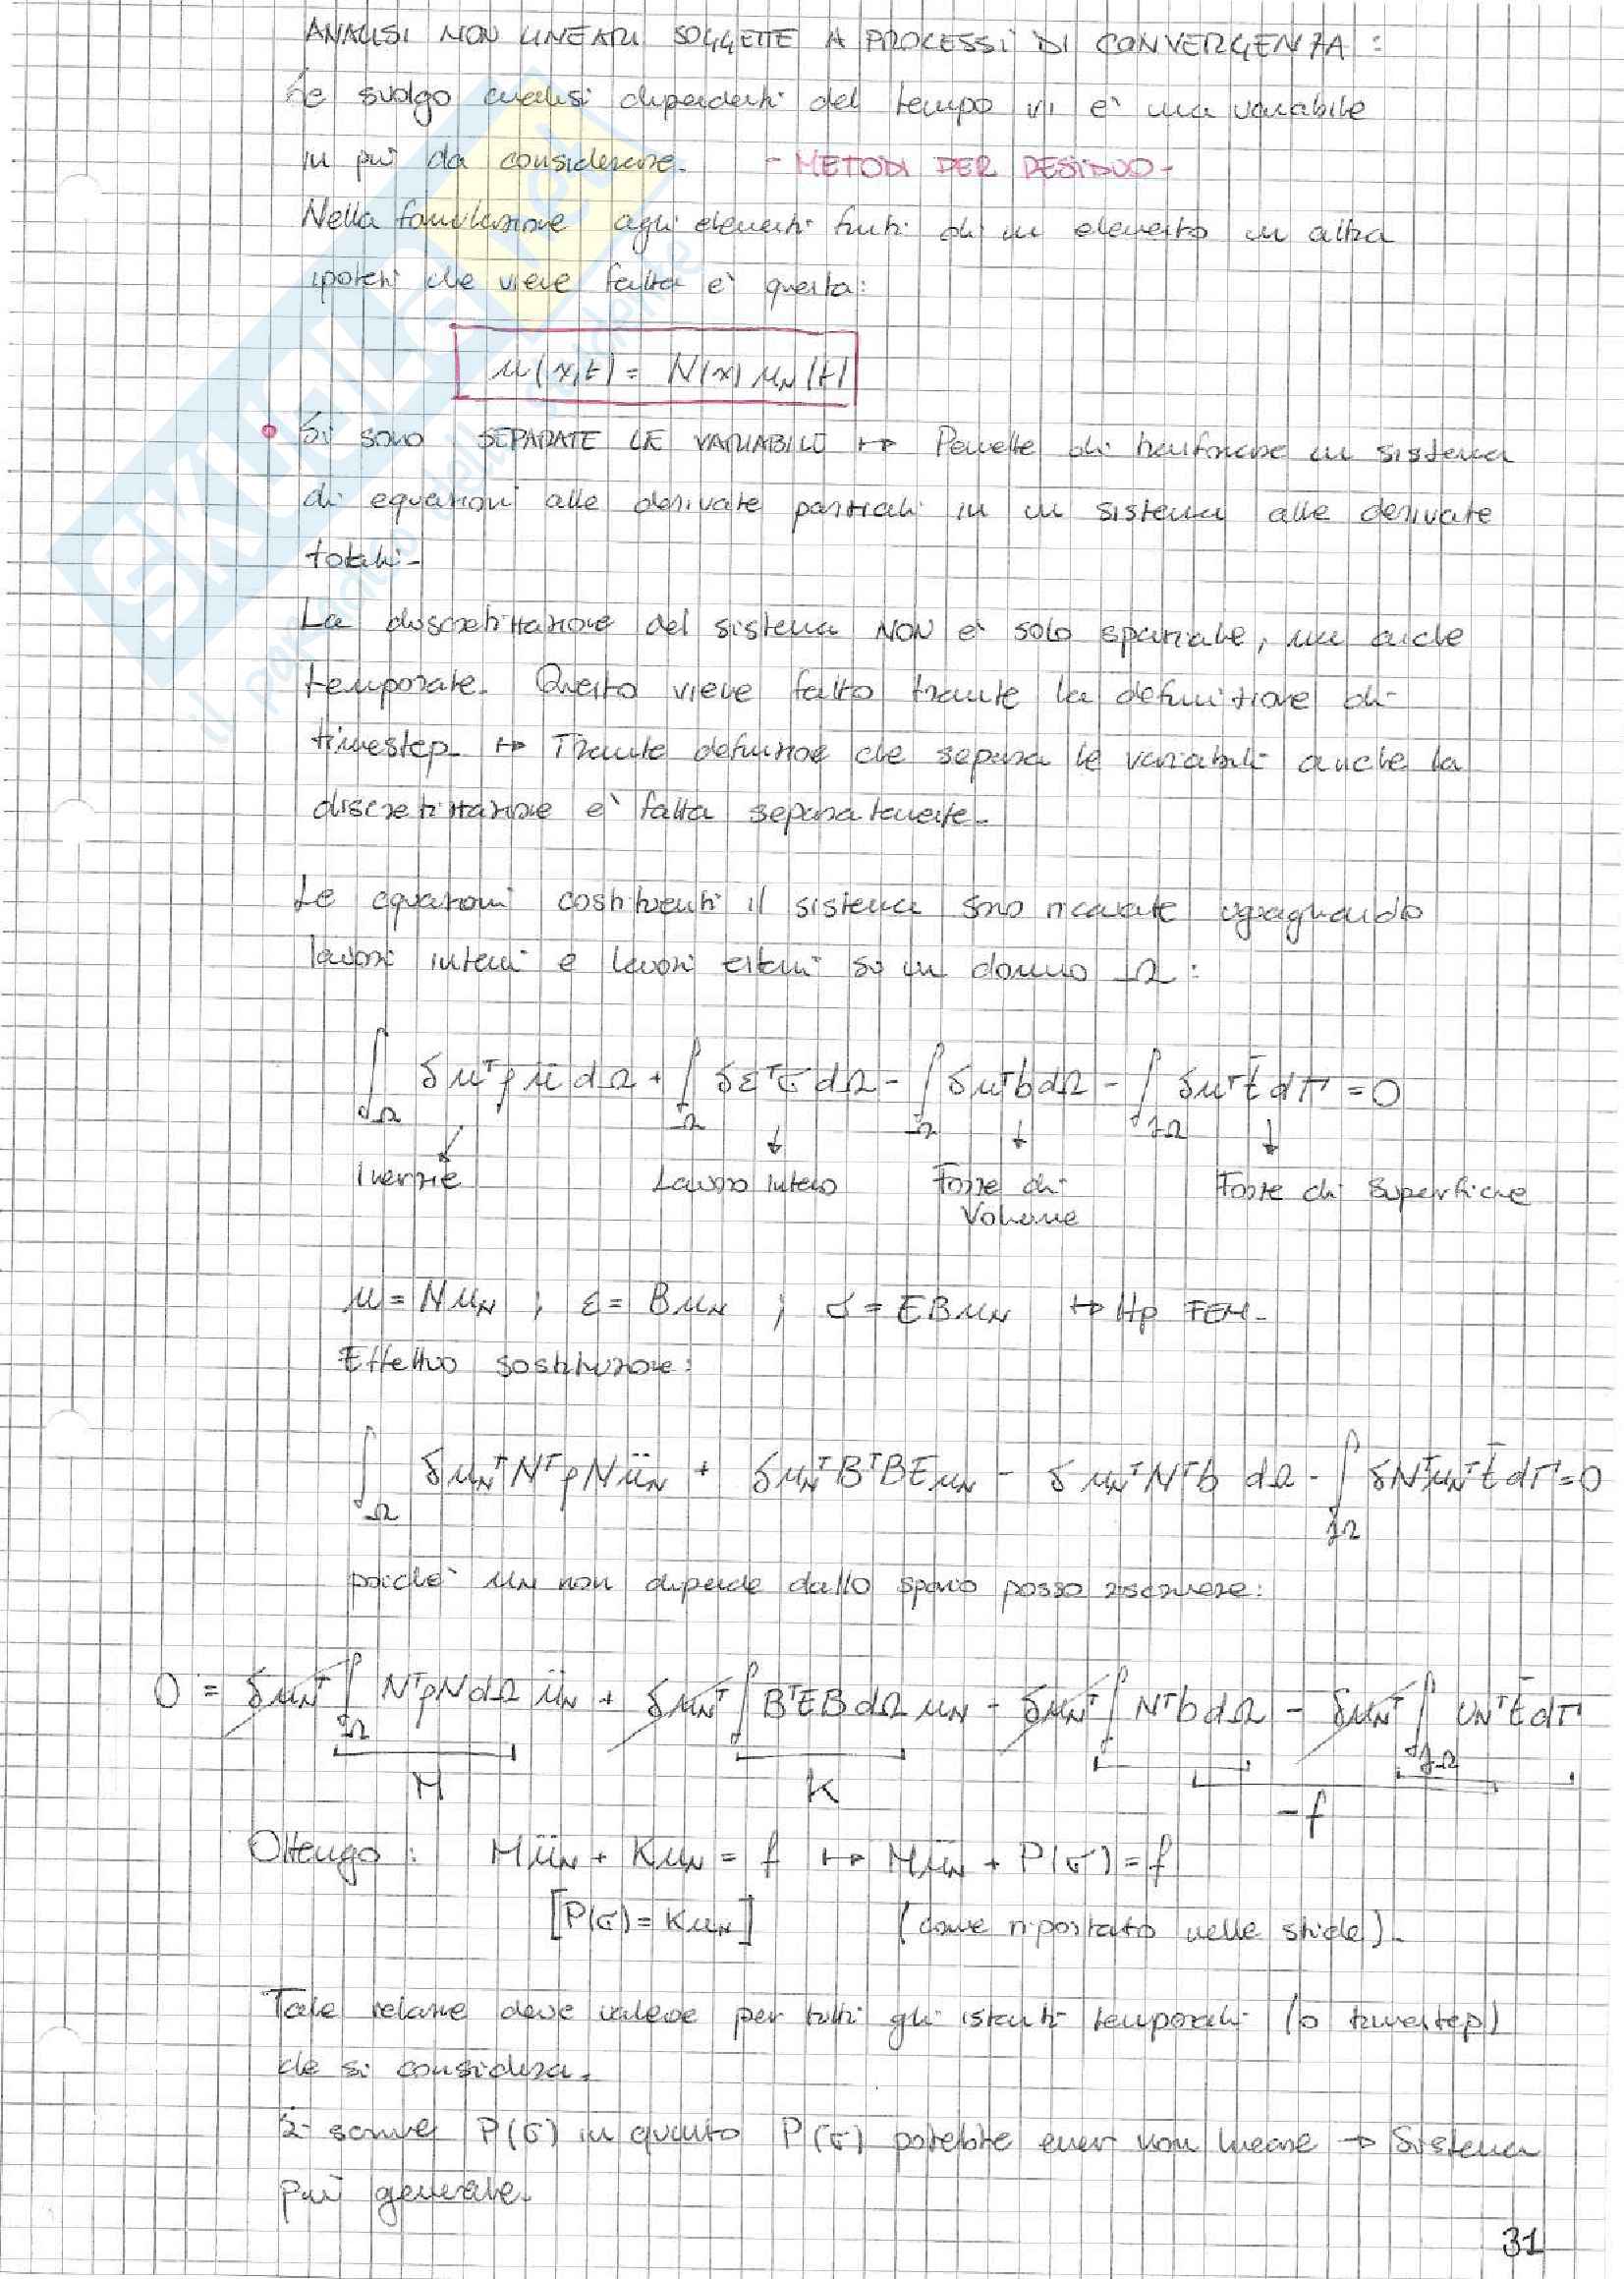 ANALISI NON LINEARI SOGGETTE A PROCESSI DI CONVERGENZA :
Se svolgo analisi dipendenti del tempo vi è una variabile
in più da considerare. - METODI PER RESIDUO -
Nella formulazione agli elementi finiti di un elemento un altra
ipotesi che viene fatta è questa:
u(x,t) = N(x) u_N(t)
• Si sono SEPARATE LE VARIABILI ↦ Permette di trasformare un sistema
di equazioni alle derivate parziali in un sistema alle derivate
totali.
La discretizzazione del sistema NON è solo spaziale, ma anche
temporale. Questo viene fatto tramite la definizione di
timestep ↦ Tramite definizione che separa le variabili anche la
discretizzazione è fatta separatamente.
Le equazioni costituenti il sistema sono ricavate uguagliando
lavori interni e lavori esterni su un dominio Ω :
∫_Ω δu^T ρ ü dΩ + ∫_Ω δε^T σ dΩ - ∫_Ω δu^T b dΩ - ∫_∂Ω δu^T t̄ dΓ = 0
↙ ↓ ↓ ↓
Inerzie Lavoro interno Forze di Forze di superficie
Volume
u = N u_N ; ε = B u_N ; σ = E B u_N ↦ Hp FEM.
Effettuo sostituzione:
∫_Ω δu_N^T N^T ρ N ü_N + δu_N^T B^T B E u_N - δu_N^T N^T b dΩ - ∫_∂Ω δN^T u_N^T t̄ dΓ = 0
poiché u_N non dipende dallo spazio posso riscrivere:
0 = δu_N^T ∫_Ω N^T ρ N dΩ ü_N + δu_N^T ∫ B^T E B dΩ u_N - δu_N^T ∫ N^T b dΩ - δu_N^T ∫_∂Ω U_N^T t̄ dΓ
M K -f
Ottengo : M ü_N + K u_N = f ↦ M ü_N + P(σ) = f
[P(σ) = K u_N] (come riportato nelle slide).
Tale relazione deve valere per tutti gli istanti temporali (o timestep)
che si considera.
Si scrive P(σ) in quanto P(σ) potrebbe esser non lineare → Sistema
più generale.
31